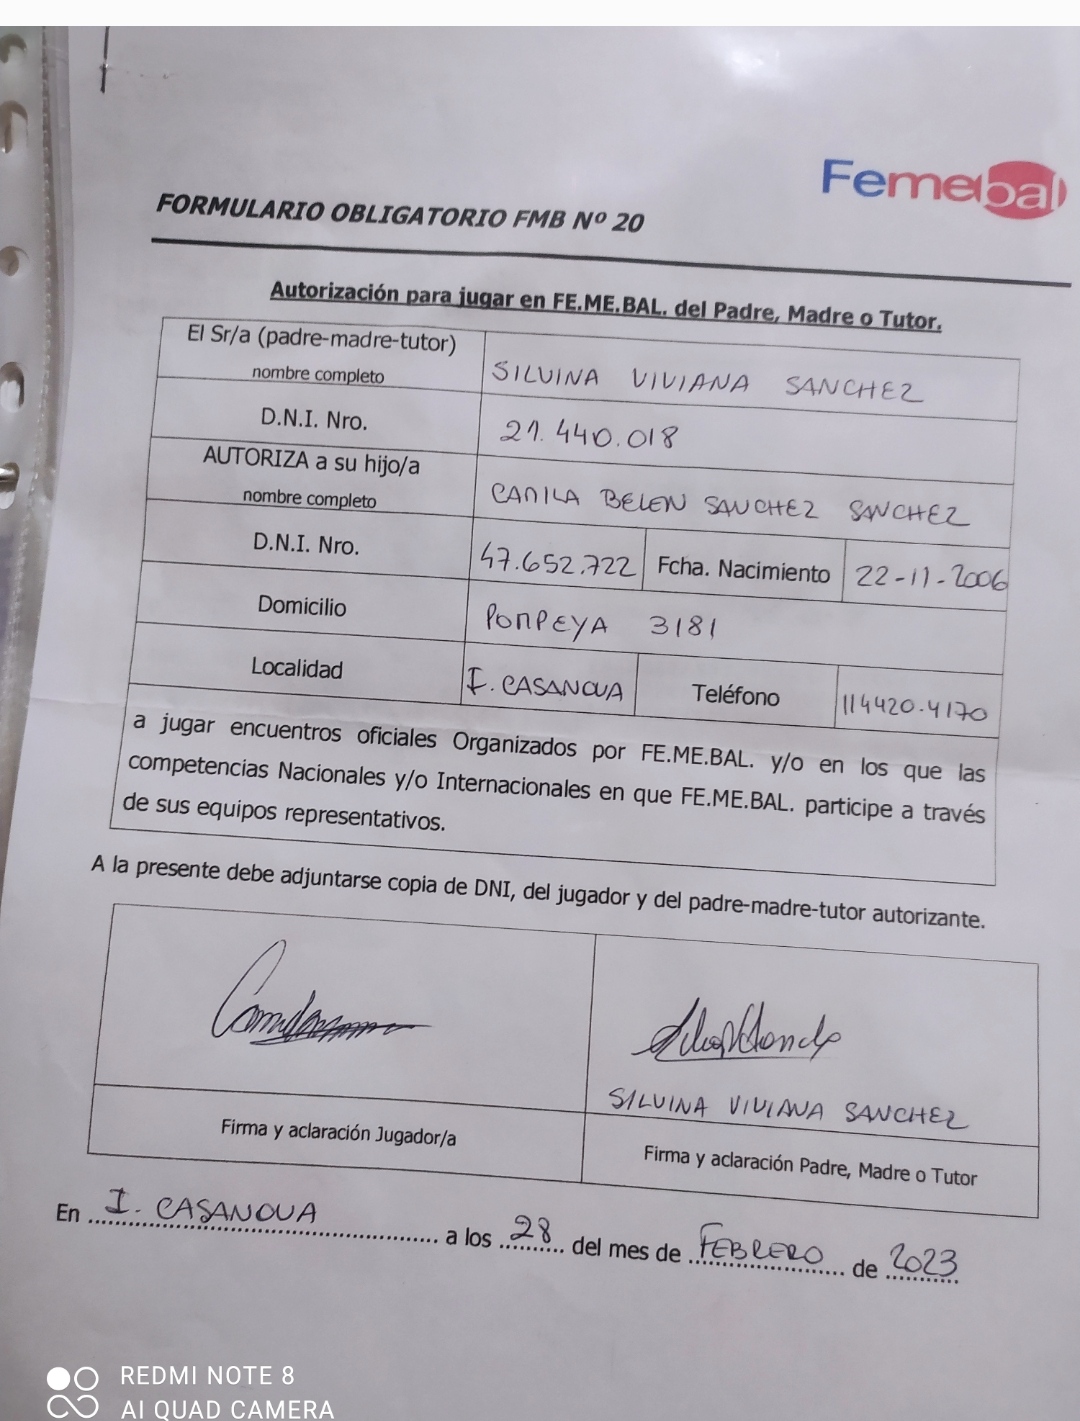 Femebal
FORMULARIO OBLIGATORIO FMB Nº 20
Autorización para jugar en FE.ME.BAL. del Padre, Madre o Tutor.
El Sr/a (padre-madre-tutor)
nombre completo
SILVINA VIVIANA SANCHEZ
D.N.I. Nro.
21.440.018
AUTORIZA a su hijo/a
nombre completo
CAMILA BELEN SANCHEZ SANCHEZ
D.N.I. Nro.
47.652.722
Fcha. Nacimiento
22-11-2006
Domicilio
POMPEYA 3181
Localidad
I. CASANOVA
Teléfono
114420-4170
a jugar encuentros oficiales Organizados por FE.ME.BAL. y/o en los que las
competencias Nacionales y/o Internacionales en que FE.ME.BAL. participe a través
de sus equipos representativos.
A la presente debe adjuntarse copia de DNI, del jugador y del padre-madre-tutor autorizante.
SILVINA VIVIANA SANCHEZ
Firma y aclaración Jugador/a
Firma y aclaración Padre, Madre o Tutor
En I. CASANOVA a los 28 del mes de FEBRERO de 2023
REDMI NOTE 8
AI QUAD CAMERA